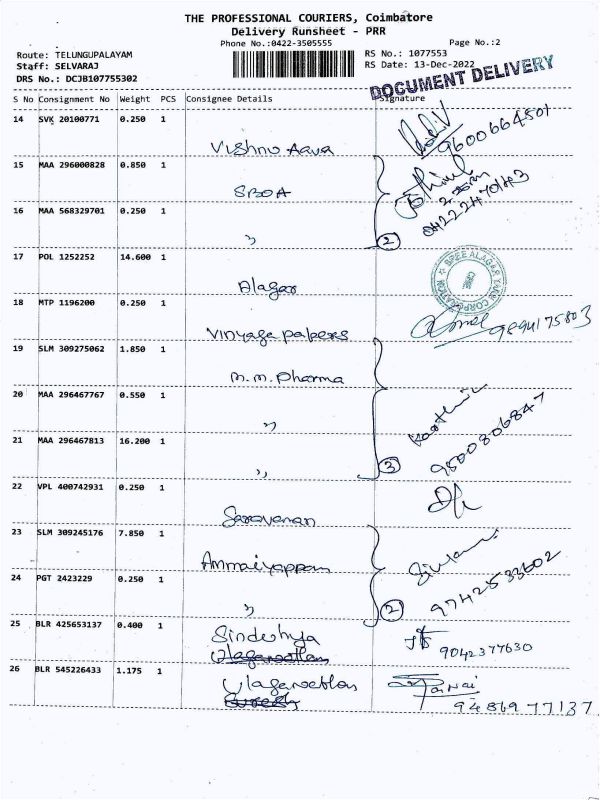 THE PROFESSIONAL COURIERS, Coimbatore
Delivery Runsheet - PRR
Phone No.:0422-3505555 Page No.:2
Route: TELUNGUPALAYAM RS No.: 1077553
Staff: SELVARAJ RS Date: 13-Dec-2022
DRS No.: DCJB107755302
DOCUMENT DELIVERY
S No Consignment No Weight PCS Consignee Details Signature
14 SVK 20100771 0.250 1
Vishnu Aava 9600664501
15 MAA 296000828 0.850 1
SBOA
16 MAA 568329701 0.250 1
" 2
17 POL 1252252 14.600 1
Alagar
SREE ALAGAR YARN CORPORATION
CBE
18 MTP 1196200 0.250 1
Vinyaga papers 9894175803
19 SLM 309275062 1.850 1
M.M. Pharma
20 MAA 296467767 0.550 1
"
21 MAA 296467813 16.200 1
" 3 9500806847
22 VPL 400742931 0.250 1
Saravanan
23 SLM 309245176 7.850 1
Ammaiyappan
24 PGT 2423229 0.250 1
" 2 9742533602
25 BLR 425653137 0.400 1
Sindhuja 9042377630
26 BLR 545226433 1.175 1
Ulaganathan
Suresh 9486977137